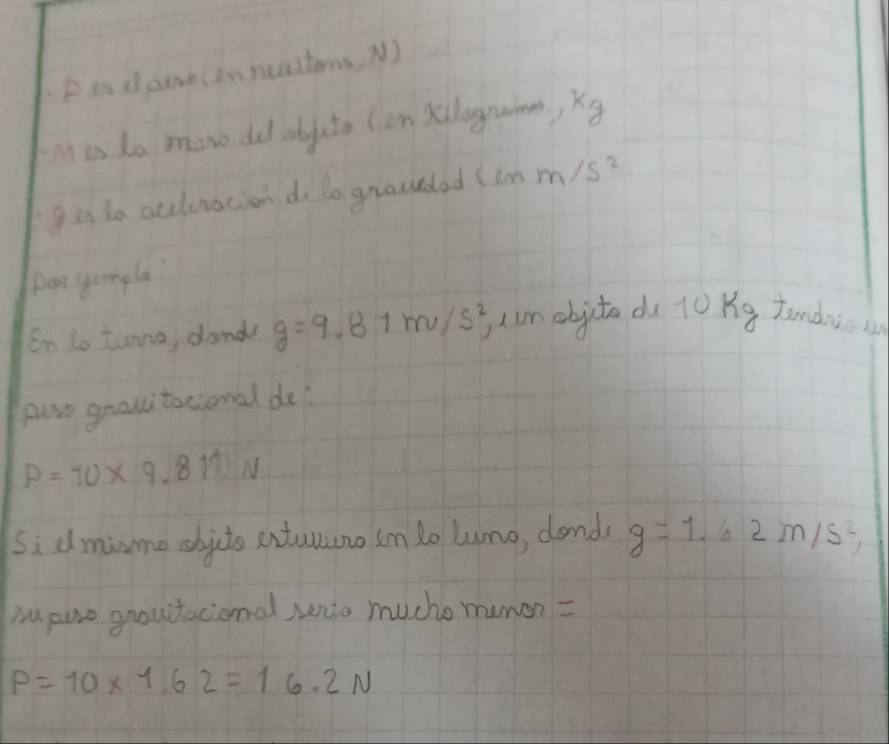 . P es el peso (en newtons, N)
. M es la masa del objeto (en Kilogramos, Kg
. g es la aceleración de la gravedad (en m/s²
por ejemplo:
En la tierra, donde g = 9.81 m/s², un objeto de 10 Kg tendria un
peso gravitacional de:
P = 10 x 9.81 N
Si el mismo objeto estuviera en la luna, donde g = 1.62 m/s²,
su peso gravitacional seria mucho menor =
P = 10 x 1.62 = 16.2 N